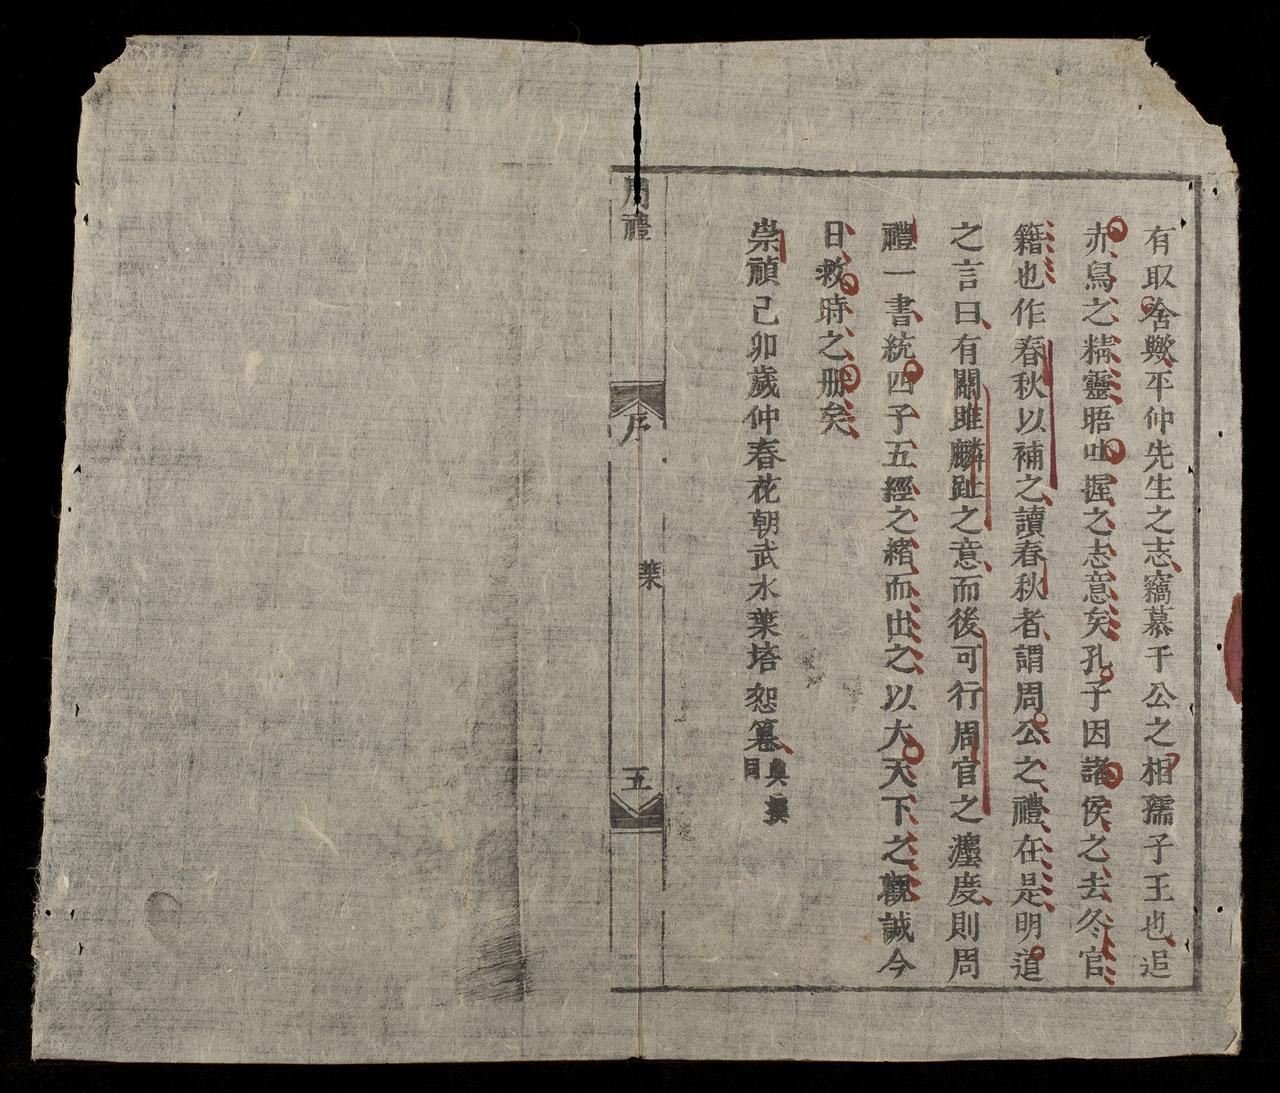 有取舍歟平仲先生之志竊慕于公之相孺子王也追
赤舄之精靈晤吐握之志意矣孔子因諸侯之去冬官
籍也作春秋以補之讀春秋者謂周公之禮在是明道
之言曰有關雎麟趾之意而後可行周官之灋度則周
禮一書統四子五經之緒而出之以大天下之觀誠今
日救時之册矣
崇禎己卯歲仲春花朝武水葉培恕篹
與撰
同
周禮
序
葉
五